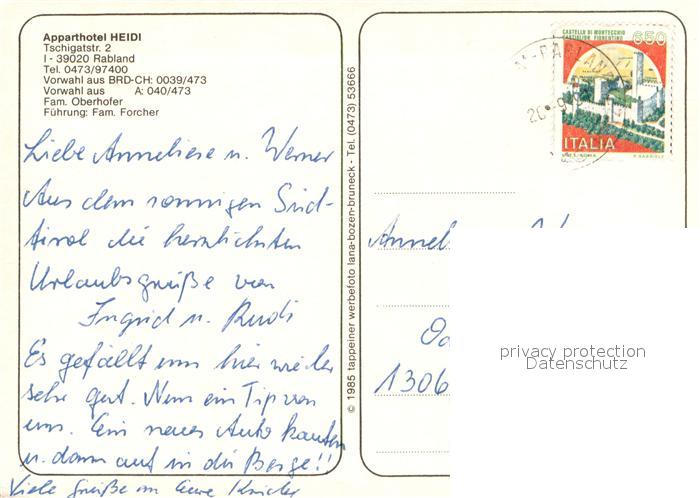 Apparthotel HEIDI
Tschigatstr. 2
I - 39020 Rabland
Tel. 0473/97400
Vorwahl aus BRD-CH: 0039/473
Vorwahl aus A: 040/473
Fam. Oberhofer
Führung: Fam. Forcher
Liebe Anneliese u. Werner
Aus dem sonnigen Süd-
tirol die herzlichsten
Urlaubsgrüße von
Ingrid u. Rudi
Es gefällt uns hier wieder
sehr gut. Nun ein Tip von
uns. Ein neues Auto kaufen
u. dann auf in die Berge!!
Viele Grüße an Eure Kinder
© 1985 tappeiner werbefoto lana-bozen-bruneck - Tel. (0473) 53666
CASTELLO DI MONTECCHIO
CASTIGLION FIORENTINO
650
ITALIA
Annel
1306
privacy protection
Datenschutz